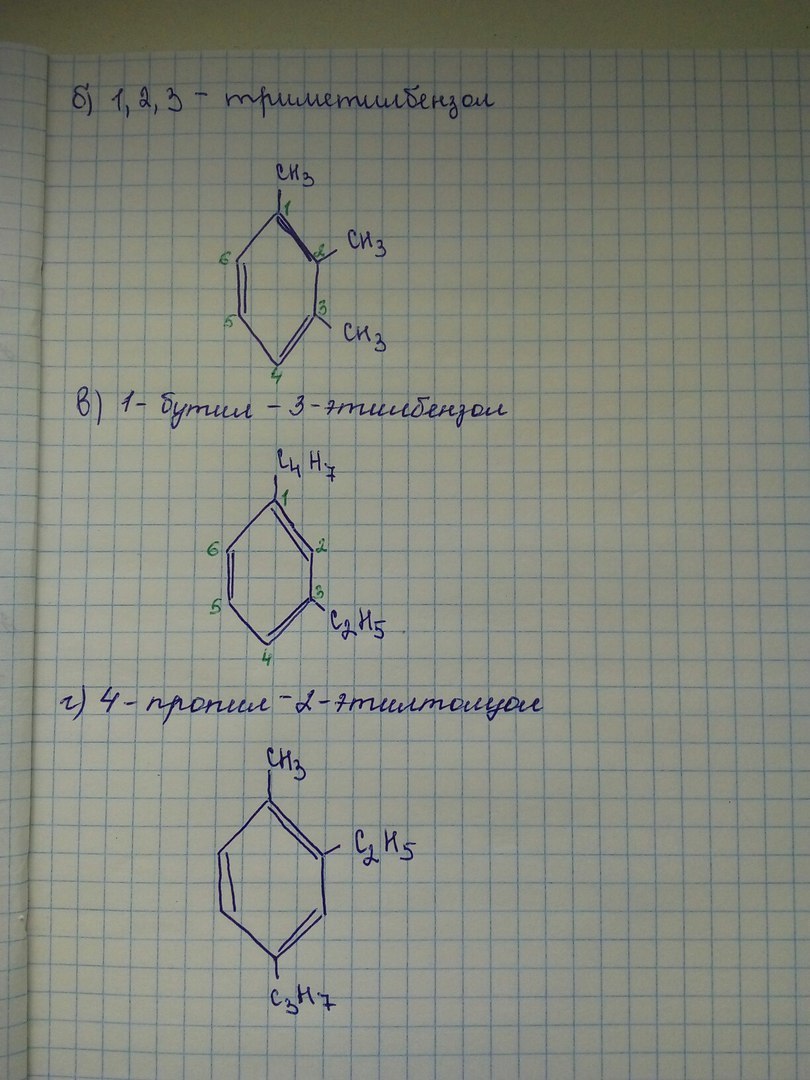 б) 1, 2, 3 - триметилбензол
CH3
1
2 CH3
6
5
3 CH3
4
в) 1- бутил - 3-этилбензол
C4H7
1
6 2
5 3
C2H5
4
г) 4- пропил -2-этилтолуол
CH3
C2H5
C3H7